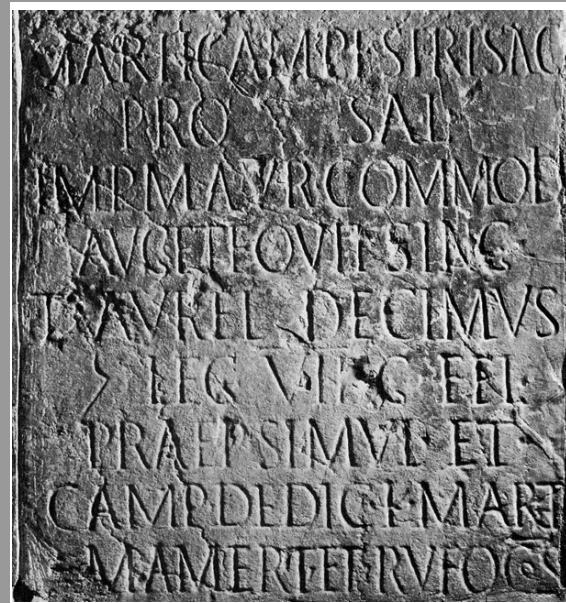 MARTI CAMPESTRI SAC
PRO SAL
IMP M AVR COMMOD
AVG ET EQVIT SING
T AVREL DECIMVS
7 LEG VII G FEL
PRAEP SIMVL ET
CAMP DEDIC K MART
MAMERT ET RVFO COS